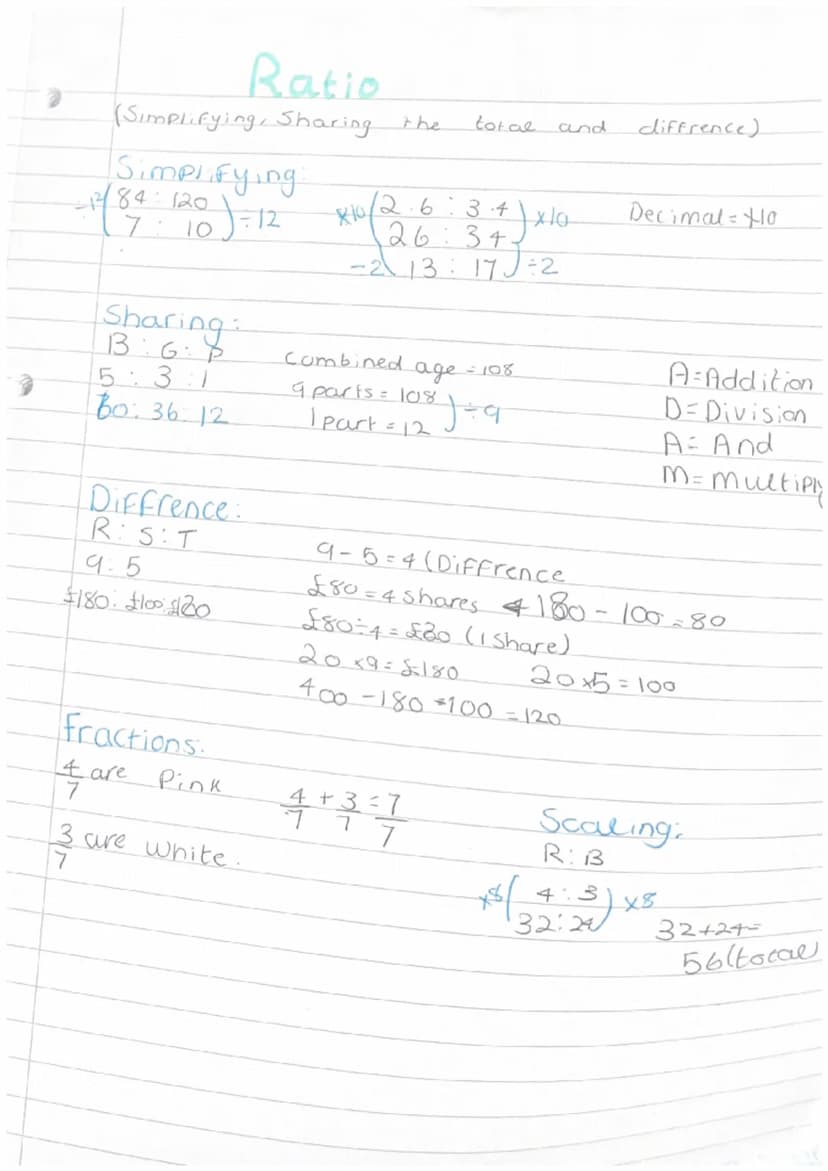 Ratio
(Simplifying, Sharing the total and diffrence)
Simplifying:
÷12 ( 84 : 120
7 : 10 ) ÷12
x10 ( 2.6 : 3.4 ) x10
26 : 34
÷2 ( 13 : 17 ) ÷2
Decimal = x10
Sharing:
B : G : P
5 : 3 : 1
60 : 36 : 12
combined age = 108
9 parts = 108
1 part = 12 ) ÷9
A = Addition
D = Division
A = And
M = Multiply
Diffrence:
R : S : T
9 : 5
£180 : £100 : £120
9 - 5 = 4 (Diffrence
£80 = 4 shares 180 - 100 = 80
£80 ÷ 4 = £20 (1 share)
20 x 9 = £180 20 x 5 = 100
400 - 180 - 100 = 120
Fractions:
4/7 are Pink
4/7 + 3/7 = 7/7
3/7 are white.
Scaling:
R : B
x8 ( 4 : 3 ) x8
32 : 24
32 + 24 =
56 (total)